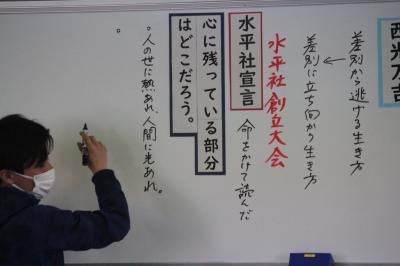 西光万吉
差別から逃げる生き方
差別に立ち向かう生き方
水平社創立大会
水平社宣言
命をかけて読んだ
心に残っている部分
はどこだろう。
。人の世に熱あれ、人間に光あれ。
。